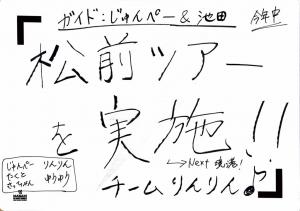 ガイド:じゅんぺー&池田
今年中
松前ツアー
を実施!!
↳Next 現港!
チームりんりん♪
じゅんぺー りんりん
たくと ゆうゆう
さっちゃん